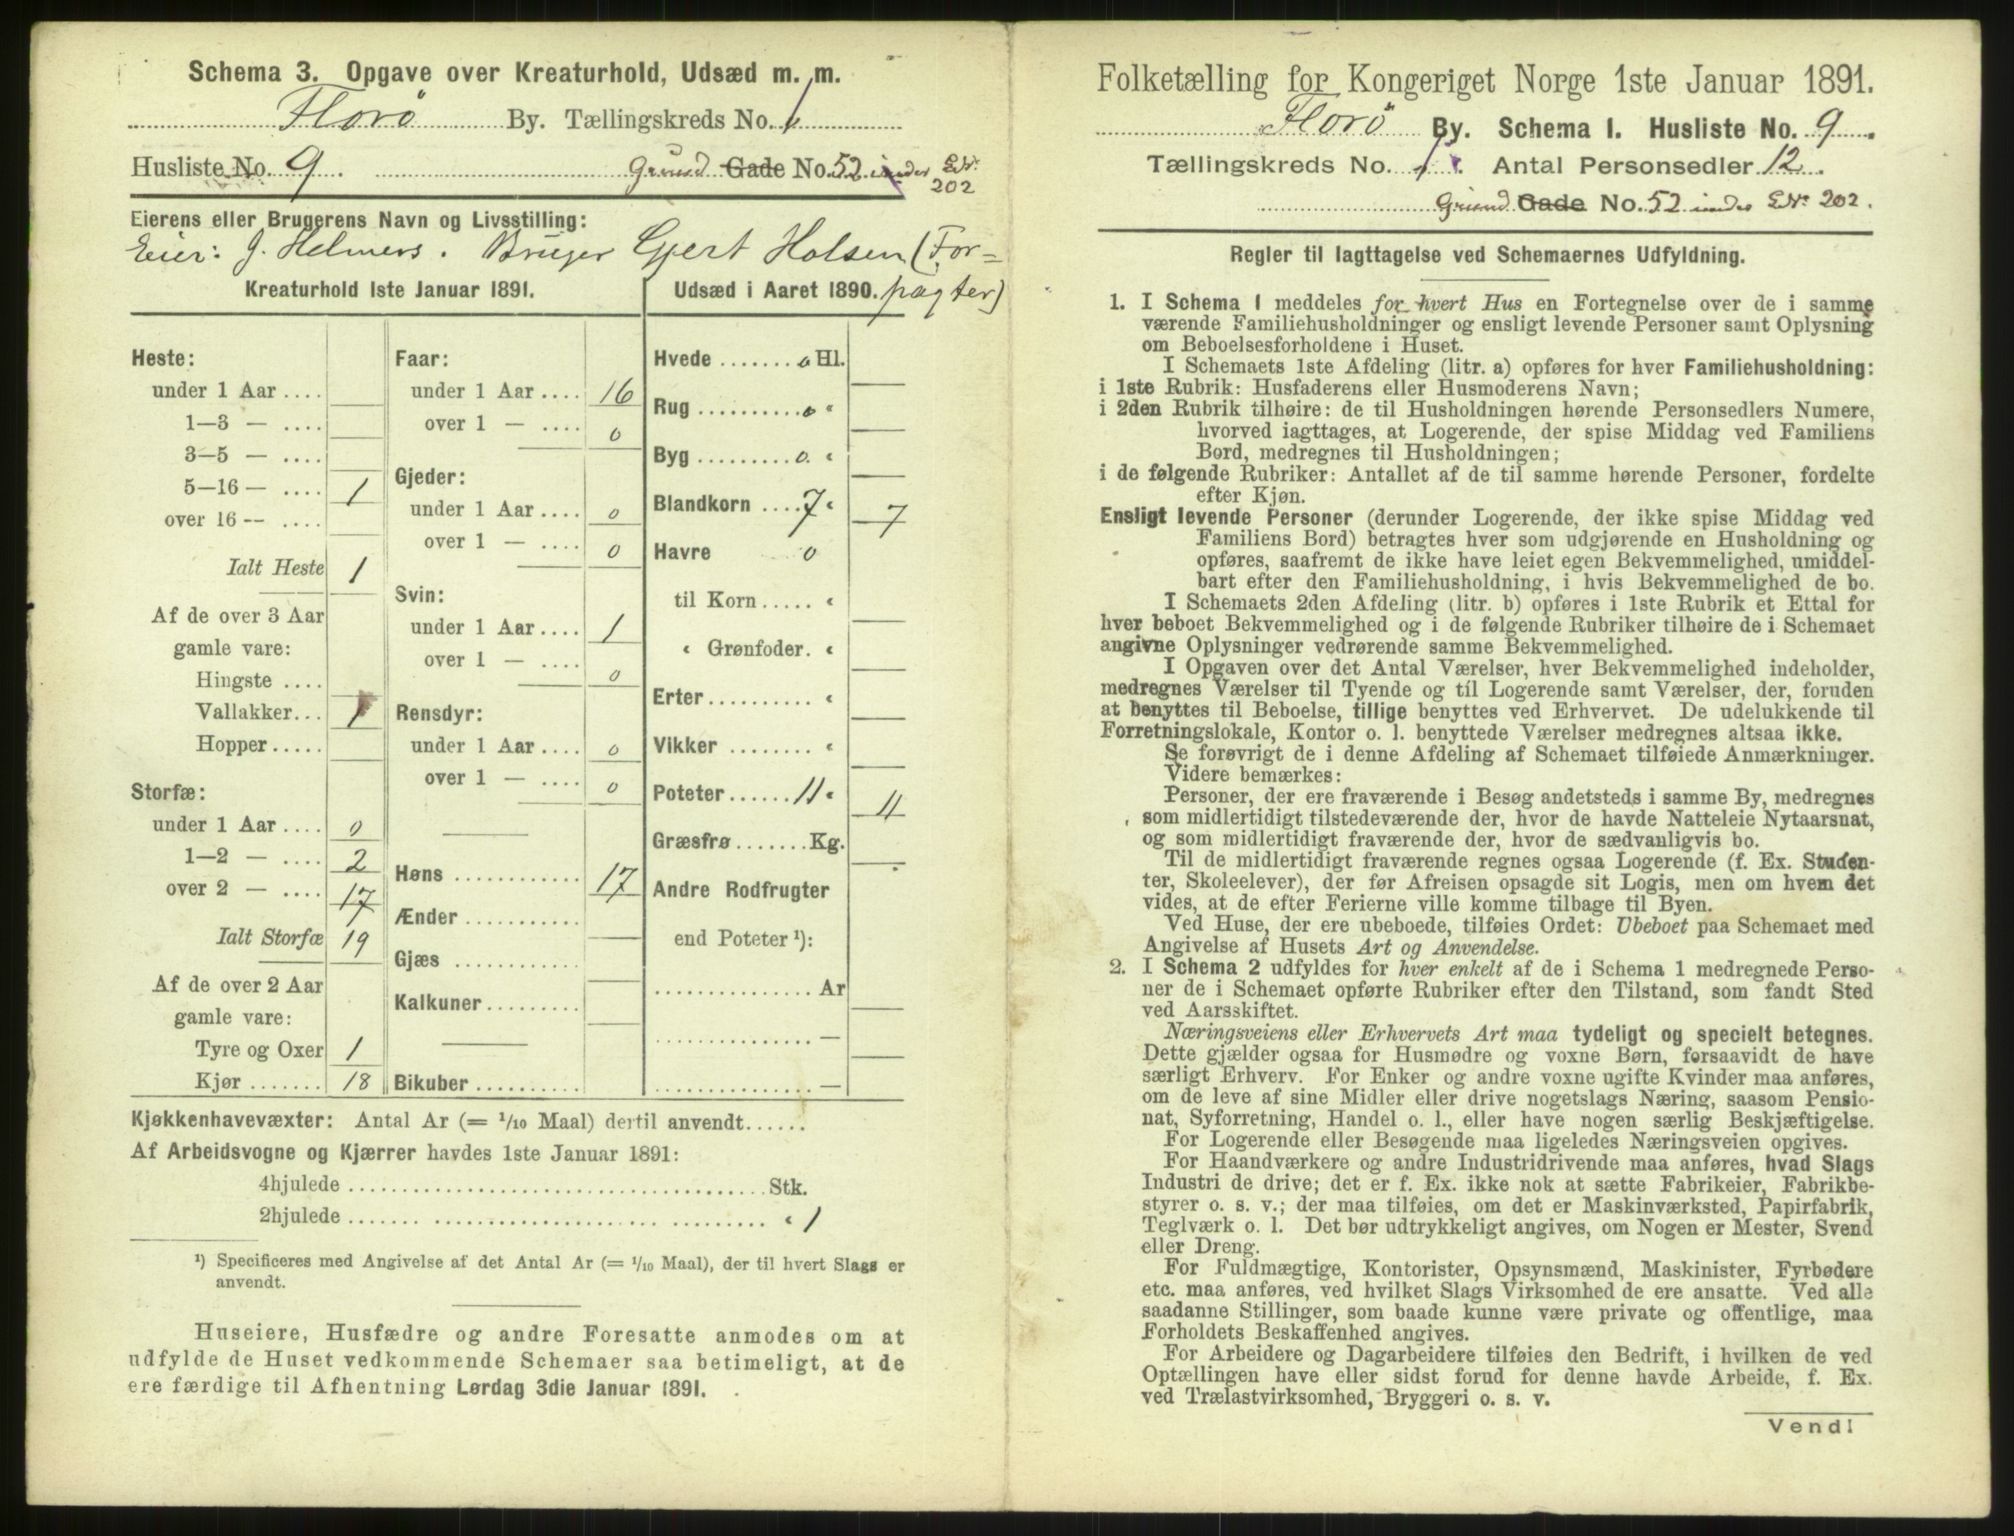 Schema 3. Opgave over Kreaturhold, Udsæd m. m.
Florö By. Tællingskreds No. 1
Husliste No. 9. Grund Gade No. 52 under GNr. 202
Eierens eller Brugerens Navn og Livsstilling:
Eier: J. Helmers. Bruger Gjert Holsen (For=
pagter)
Kreaturhold 1ste Januar 1891.
Heste:
under 1 Aar ....
1—3 — ....
3—5 — ....
5—16 — .... 1
over 16 -- ....
Ialt Heste 1
Af de over 3 Aar
gamle vare:
Hingste ....
Vallakker... 1
Hopper .....
Storfæ:
under 1 Aar .... 0
1—2 — .... 2
over 2 — .... 17
Ialt Storfæ 19
Af de over 2 Aar
gamle vare:
Tyre og Oxer 1
Kjør ....... 18
Faar:
under 1 Aar .... 16
over 1 — .... 0
Gjeder:
under 1 Aar .... 0
over 1 — .... 0
Svin:
under 1 Aar .... 1
over 1 — .... 0
Rensdyr:
under 1 Aar .... 0
over 1 — .... 0
Høns ............ 17
Ænder ...........
Gjæs ............
Kalkuner .........
Bikuber ..........
Udsæd i Aaret 1890.
Hvede ....... 0 Hl.
Rug .......... 0 "
Byg ......... 0. "
Blandkorn .... 7 " 7
Havre 0
til Korn ..... "
" Grønfoder. "
Erter .......... "
Vikker ........ "
Poteter ...... 11 " 11
Græsfrø ....... Kg.
Andre Rodfrugter
end Poteter ¹):
............... Ar
............... —
............... —
Kjøkkenhavevæxter: Antal Ar (= 1/10 Maal) dertil anvendt......
Af Arbeidsvogne og Kjærrer havdes 1ste Januar 1891:
4hjulede ....................................... Stk.
2hjulede ....... ..................... ......... " 1
¹) Specificeres med Angivelse af det Antal Ar (= 1/10 Maal), der til hvert Slags er
anvendt.
Huseiere, Husfædre og andre Foresatte anmodes om at
udfylde de Huset vedkommende Schemaer saa betimeligt, at de
ere færdige til Afhentning Lørdag 3die Januar 1891.
Folketælling for Kongeriget Norge 1ste Januar 1891.
Florö By. Schema I. Husliste No. 9.
Tællingskreds No. 1. Antal Personsedler 12.
Grund Gade No. 52 under GNr. 202.
Regler til Iagttagelse ved Schemaernes Udfyldning.
1. I Schema 1 meddeles for hvert Hus en Fortegnelse over de i samme
værende Familiehusholdninger og ensligt levende Personer samt Oplysning
om Beboelsesforholdene i Huset.
I Schemaets 1ste Afdeling (litr. a) opføres for hver Familiehusholdning:
i 1ste Rubrik: Husfaderens eller Husmoderens Navn;
i 2den Rubrik tilhøire: de til Husholdningen hørende Personsedlers Numere,
hvorved iagttages, at Logerende, der spise Middag ved Familiens
Bord, medregnes til Husholdningen;
i de følgende Rubriker: Antallet af de til samme hørende Personer, fordelte
efter Kjøn.
Ensligt levende Personer (derunder Logerende, der ikke spise Middag ved
Familiens Bord) betragtes hver som udgjørende en Husholdning og
opføres, saafremt de ikke have leiet egen Bekvemmelighed, umiddel-
bart efter den Familiehusholdning, i hvis Bekvemmelighed de bo.
I Schemaets 2den Afdeling (litr. b) opføres i 1ste Rubrik et Ettal for
hver beboet Bekvemmelighed og i de følgende Rubriker tilhøire de i Schemaet
angivne Oplysninger vedrørende samme Bekvemmelighed.
I Opgaven over det Antal Værelser, hver Bekvemmelighed indeholder,
medregnes Værelser til Tyende og til Logerende samt Værelser, der, foruden
at benyttes til Beboelse, tillige benyttes ved Erhvervet. De udelukkende til
Forretningslokale, Kontor o. l. benyttede Værelser medregnes altsaa ikke.
Se forøvrigt de i denne Afdeling af Schemaet tilføiede Anmærkninger.
Videre bemærkes:
Personer, der ere fraværende i Besøg andetsteds i samme By, medregnes
som midlertidigt tilstedeværende der, hvor de havde Natteleie Nytaarsnat,
og som midlertidigt fraværende der, hvor de sædvanligvis bo.
Til de midlertidigt fraværende regnes ogsaa Logerende (f. Ex. Studen-
ter, Skoleelever), der før Afreisen opsagde sit Logis, men om hvem det
vides, at de efter Ferierne ville komme tilbage til Byen.
Ved Huse, der ere ubeboede, tilføies Ordet: Ubeboet paa Schemaet med
Angivelse af Husets Art og Anvendelse.
2. I Schema 2 udfyldes for hver enkelt af de i Schema 1 medregnede Perso-
ner de i Schemaet opførte Rubriker efter den Tilstand, som fandt Sted
ved Aarsskiftet.
Næringsveiens eller Erhvervets Art maa tydeligt og specielt betegnes.
Dette gjælder ogsaa for Husmødre og voxne Børn, forsaavidt de have
særligt Erhverv. For Enker og andre voxne ugifte Kvinder maa anføres,
om de leve af sine Midler eller drive nogetslags Næring, saasom Pensio-
nat, Syforretning, Handel o. l., eller have nogen særlig Beskjæftigelse.
For Logerende eller Besøgende maa ligeledes Næringsveien opgives.
For Haandværkere og andre Industridrivende maa anføres, hvad Slags
Industri de drive; det er f. Ex. ikke nok at sætte Fabrikeier, Fabrikbe-
styrer o. s. v.; der maa tilføies, om det er Maskinværksted, Papirfabrik,
Teglværk o. l. Det bør udtrykkeligt angives, om Nogen er Mester, Svend
eller Dreng.
For Fuldmægtige, Kontorister, Opsynsmænd, Maskinister, Fyrbødere
etc. maa anføres, ved hvilket Slags Virksomhed de ere ansatte. Ved alle
saadanne Stillinger, som baade kunne være private og offentlige, maa
Forholdets Beskaffenhed angives.
For Arbeidere og Dagarbeidere tilføies den Bedrift, i hvilken de ved
Optællingen have eller sidst forud for denne havde Arbeide, f. Ex.
ved Trælastvirksomhed, Bryggeri o. s. v.
Vend!